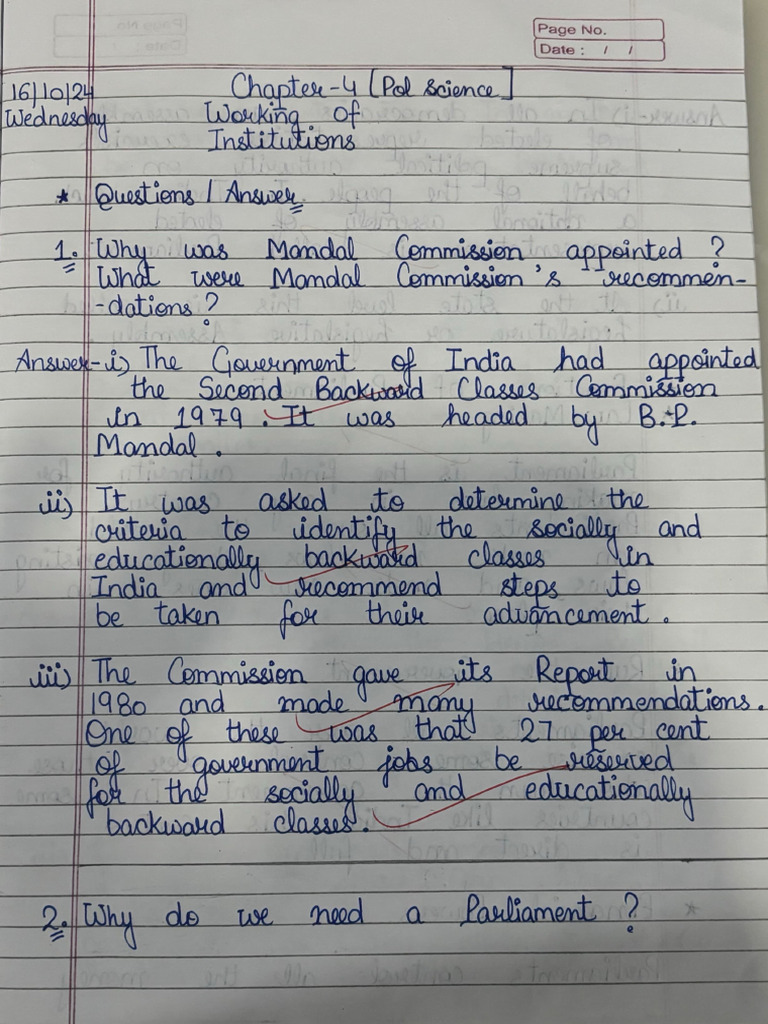 Page No.
Date : / /
16/10/24 Chapter-4 [Pol Science]
Wednesday Working of
Institutions
* Questions / Answer
1. Why was Mandal Commission appointed ?
What were Mandal Commission's recommen-
-dations ?
Answer-i) The Government of India had appointed
the Second Backward Classes Commission
in 1979. It was headed by B.P.
Mandal.
ii) It was asked to determine the
criteria to identify the socially and
educationally backward classes in
India and recommend steps to
be taken for their advancement.
iii) The Commission gave its Report in
1980 and made many recommendations.
One of these was that 27 per cent
of government jobs be reserved
for the socially and educationally
backward classes.
2. Why do we need a Parliament ?